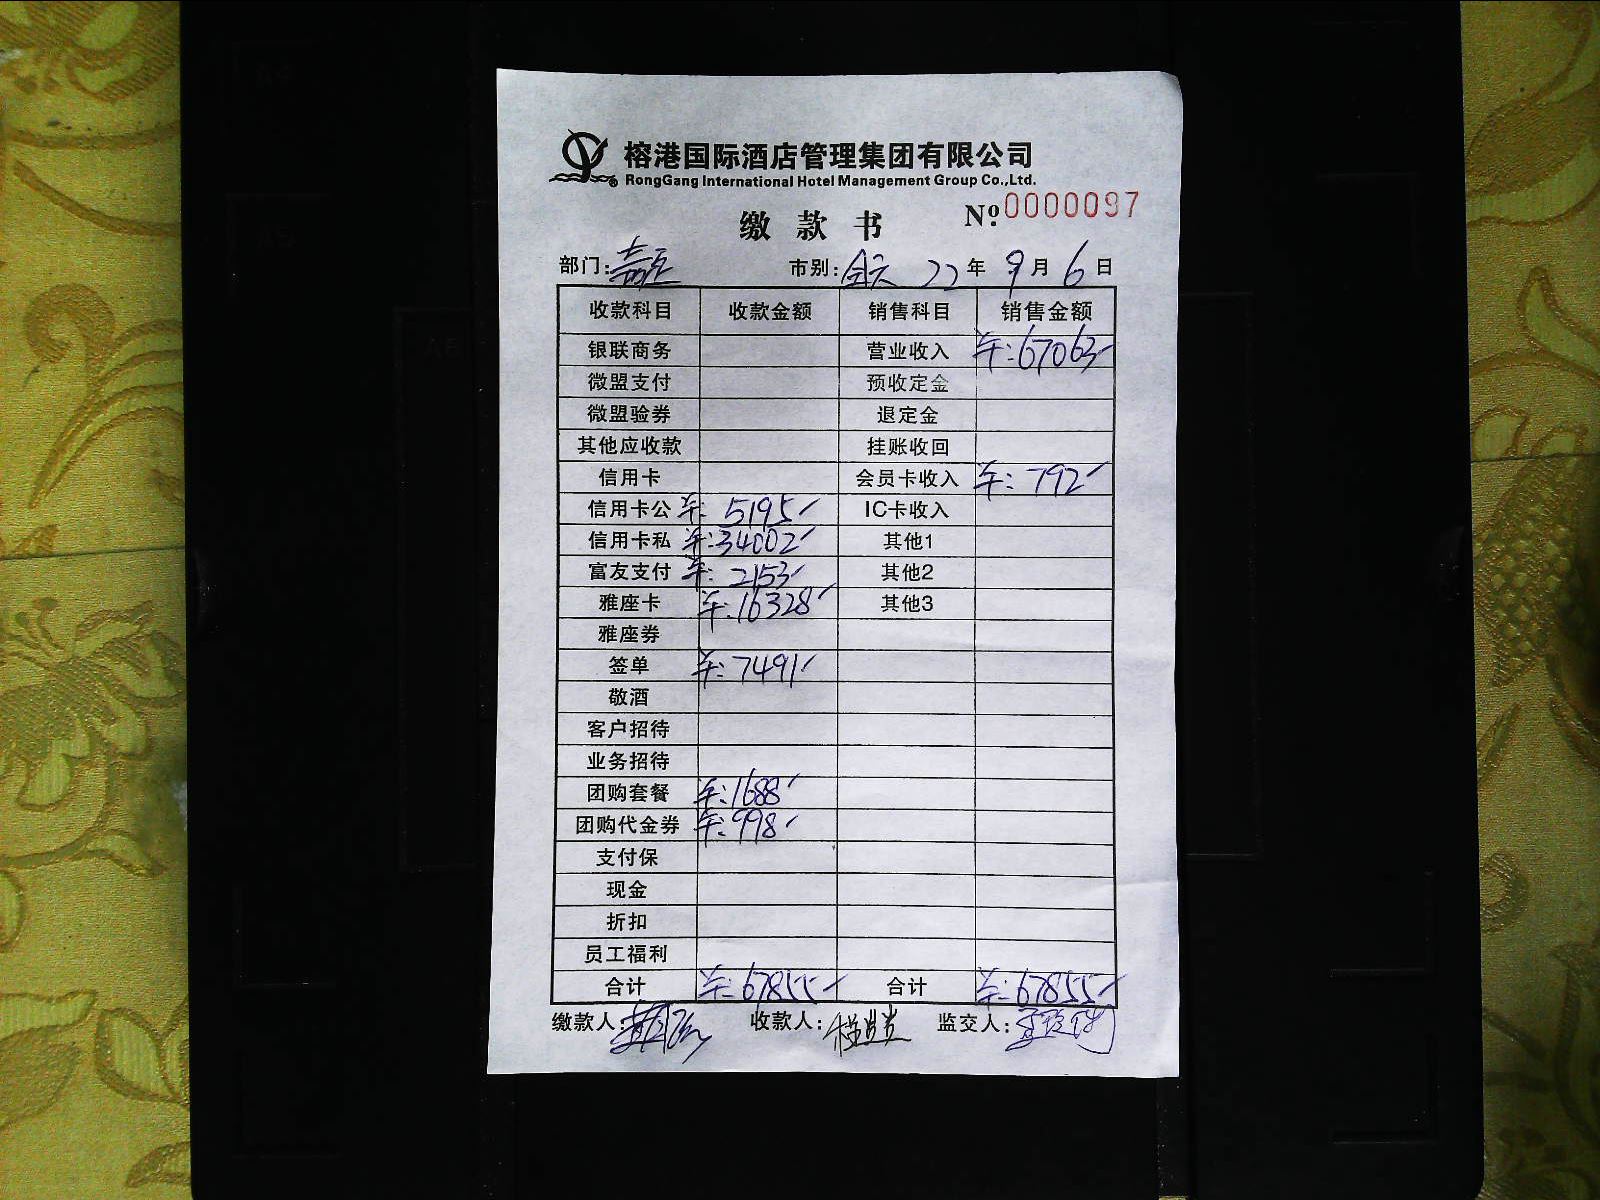 榕港国际酒店管理集团有限公司
RongGang International Hotel Management Group Co.,Ltd.
缴款书 № 0000097
部门: 市别: 全天 22年 9月 6日
收款科目 收款金额 销售科目 销售金额
银联商务 营业收入 ¥:67063
微盟支付 预收定金
微盟验券 退定金
其他应收款 挂账收回
信用卡 会员卡收入 ¥:792
信用卡公 ¥:5195 IC卡收入
信用卡私 ¥:34002 其他1
富友支付 ¥:2153 其他2
雅座卡 ¥:16328 其他3
雅座券
签单 ¥:7491
敬酒
客户招待
业务招待
团购套餐 ¥:1688
团购代金券 ¥:998
支付保
现金
折扣
员工福利
合计 ¥:67855 合计 ¥:67855
缴款人: 收款人: 监交人:
A4
A5
A6